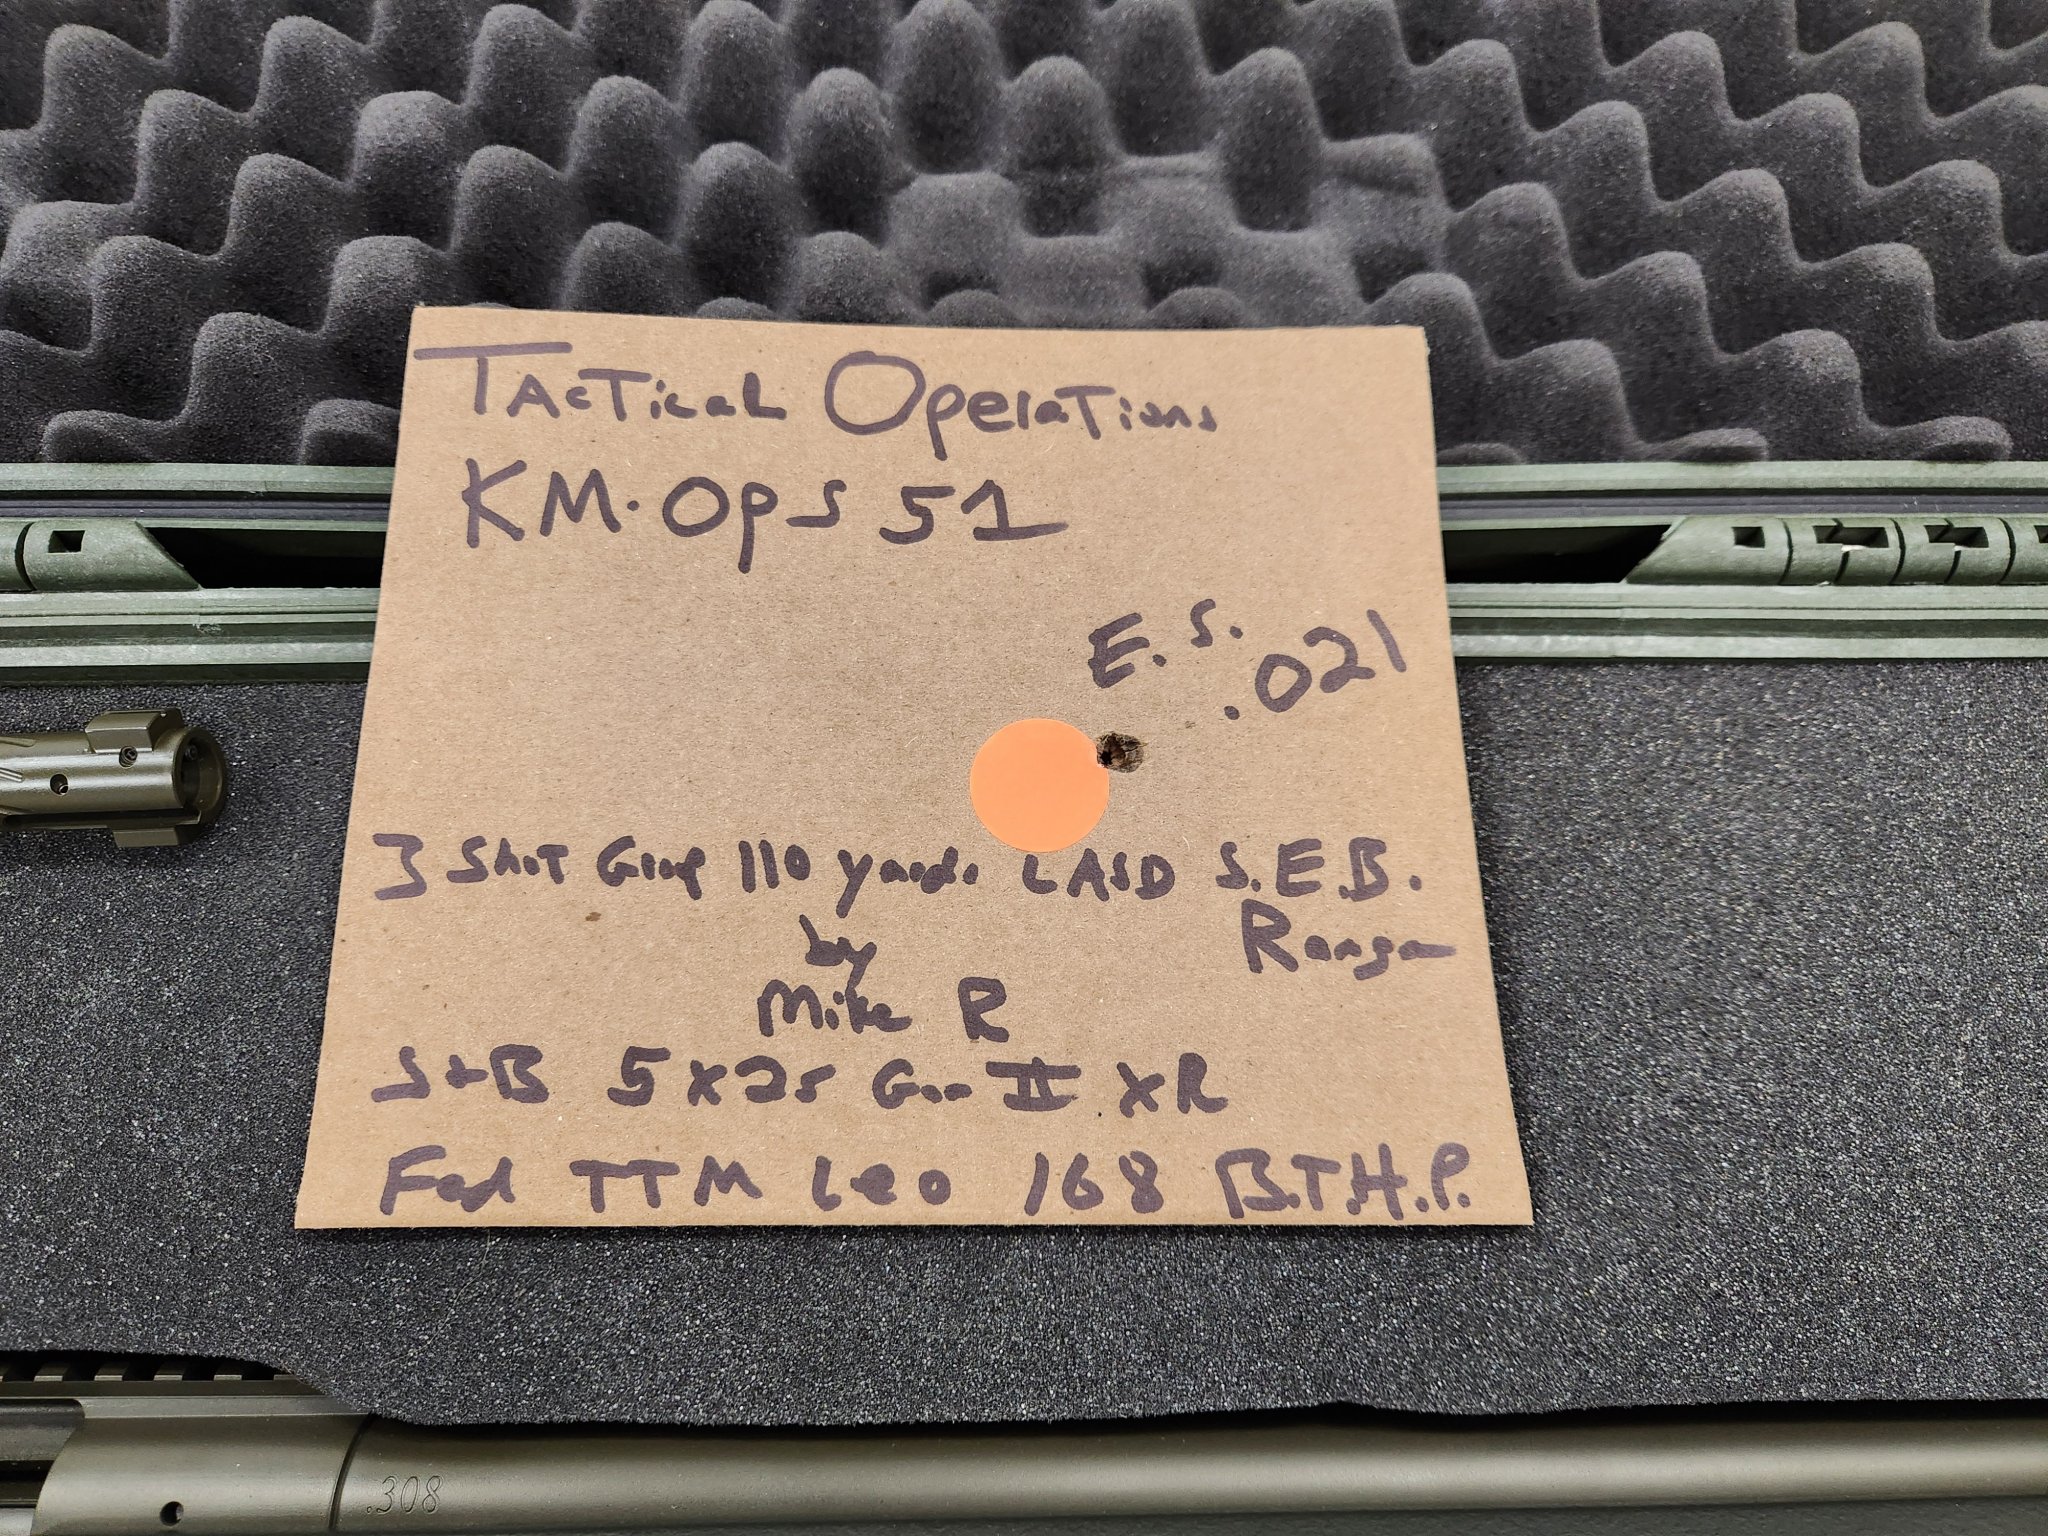 TACTiCAL OpeRATions
KM.OpS 51
E.S.
.021
3 Shot Group 110 yards LASD S.E.B.
Range
by
Mike R
S+B 5x25 Gen II XR
Fed TTM Leo 168 B.T.H.P.
.308